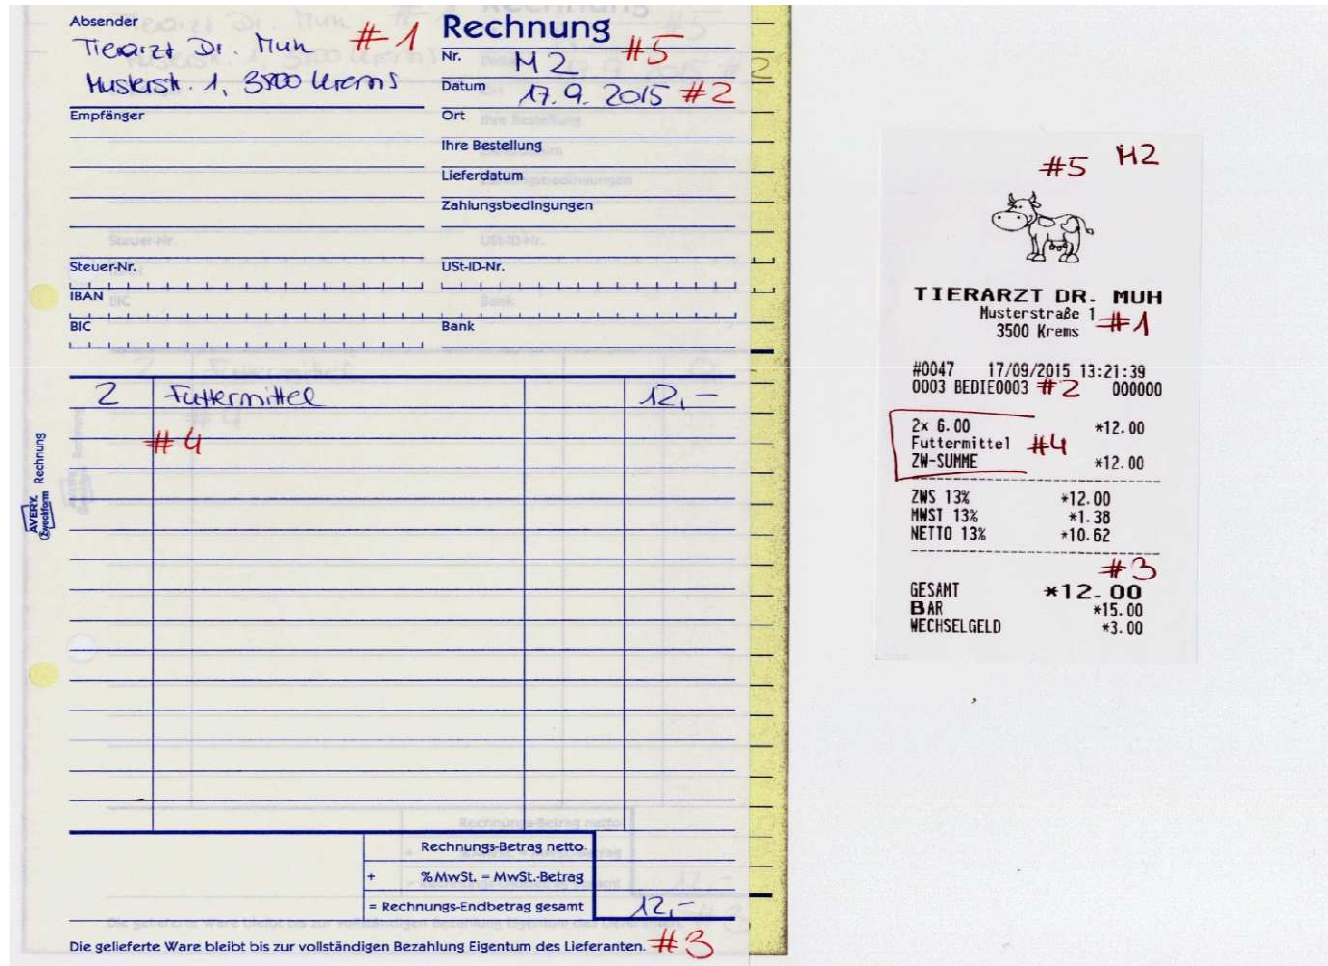 Absender
Tierarzt Dr. Muh #1
Musterstr. 1, 3500 Krems
Rechnung
Nr. M2 #5
Datum 17.9.2015 #2
Empfänger
Ort
Ihre Bestellung
Lieferdatum
Zahlungsbedingungen
Steuer-Nr.
USt-ID-Nr.
IBAN
BIC
Bank
2 Futtermittel 12,-
#4
AVERY Zweckform Rechnung
Rechnungs-Betrag netto
+ % MwSt. = MwSt.-Betrag
= Rechnungs-Endbetrag gesamt 12,-
Die gelieferte Ware bleibt bis zur vollständigen Bezahlung Eigentum des Lieferanten. #3
#5 M2
TIERARZT DR. MUH
Musterstraße 1
3500 Krems #1
#0047 17/09/2015 13:21:39
0003 BEDIE0003 #2 000000
2x 6.00 *12.00
Futtermittel #4
ZW-SUMME *12.00
ZWS 13% *12.00
MWST 13% *1.38
NETTO 13% *10.62
#3
GESAMT *12.00
BAR *15.00
WECHSELGELD *3.00